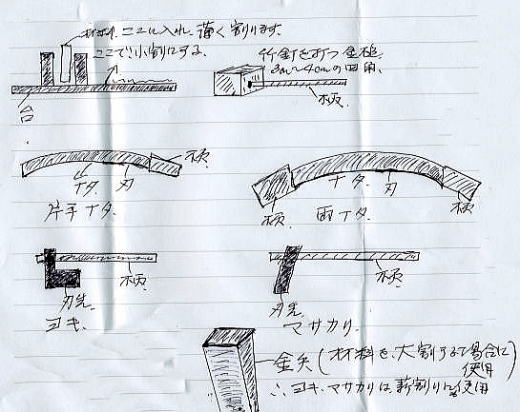 材料、ココに入れ、薄く割ります。
ここで小割にする。
台
竹釘を打つ金槌
3cm〜4cmの四角。
柄
柄
ナタ 刃
片手ナタ。
ナタ 刃
柄
両ナタ。
柄
柄
刃先
ヨキ
柄
刃先
マサカリ。
金矢(材料を、大割する場合に
使用
∴ヨキ、マサカリは、薪割りにも使用